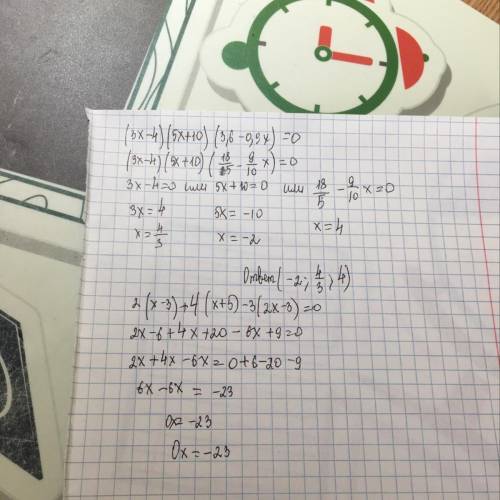 (3x-4)(5x+10)(3,6-0,9x)=0
(3x-4)(5x+10)(18/5-9/10x)=0
3x-4=0 или 5x+10=0 или 18/5-9/10x=0
3x=4 5x=-10
x=4/3 x=-2 x=4
Ответ(-2; 4/3; 4)
2(x-3)+4(x+5)-3(2x-3)=0
2x-6+4x+20-6x+9=0
2x+4x-6x=0+6-20-9
6x-6x=-23
0x=-23
0x=-23